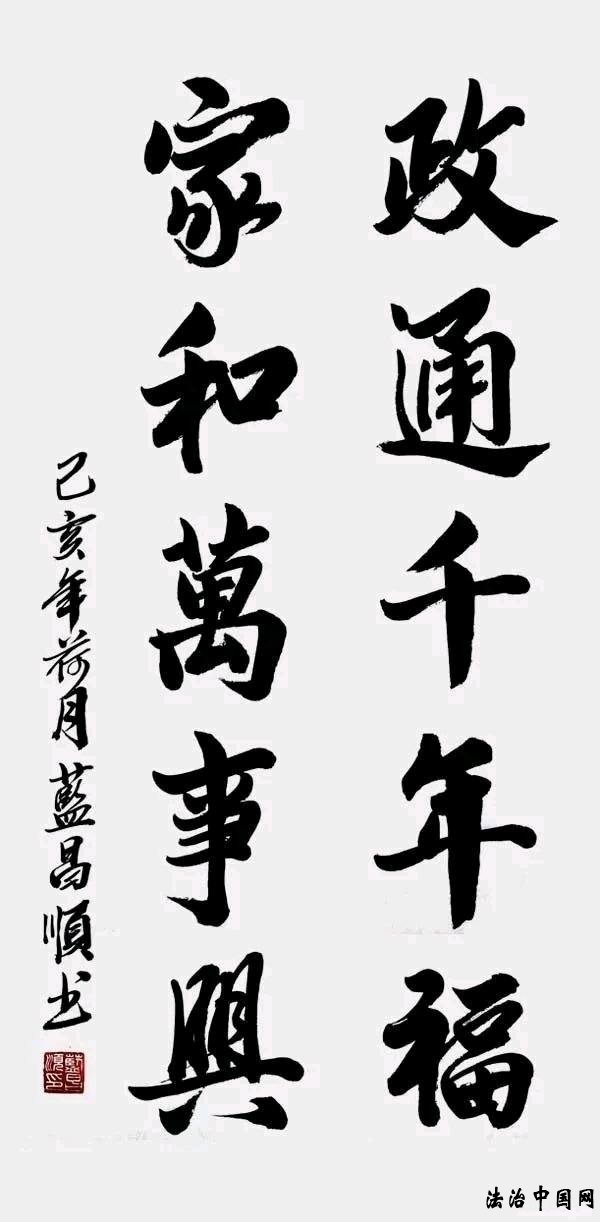 政通千年福
家和萬事興
己亥年荷月藍昌順书
法治中国网